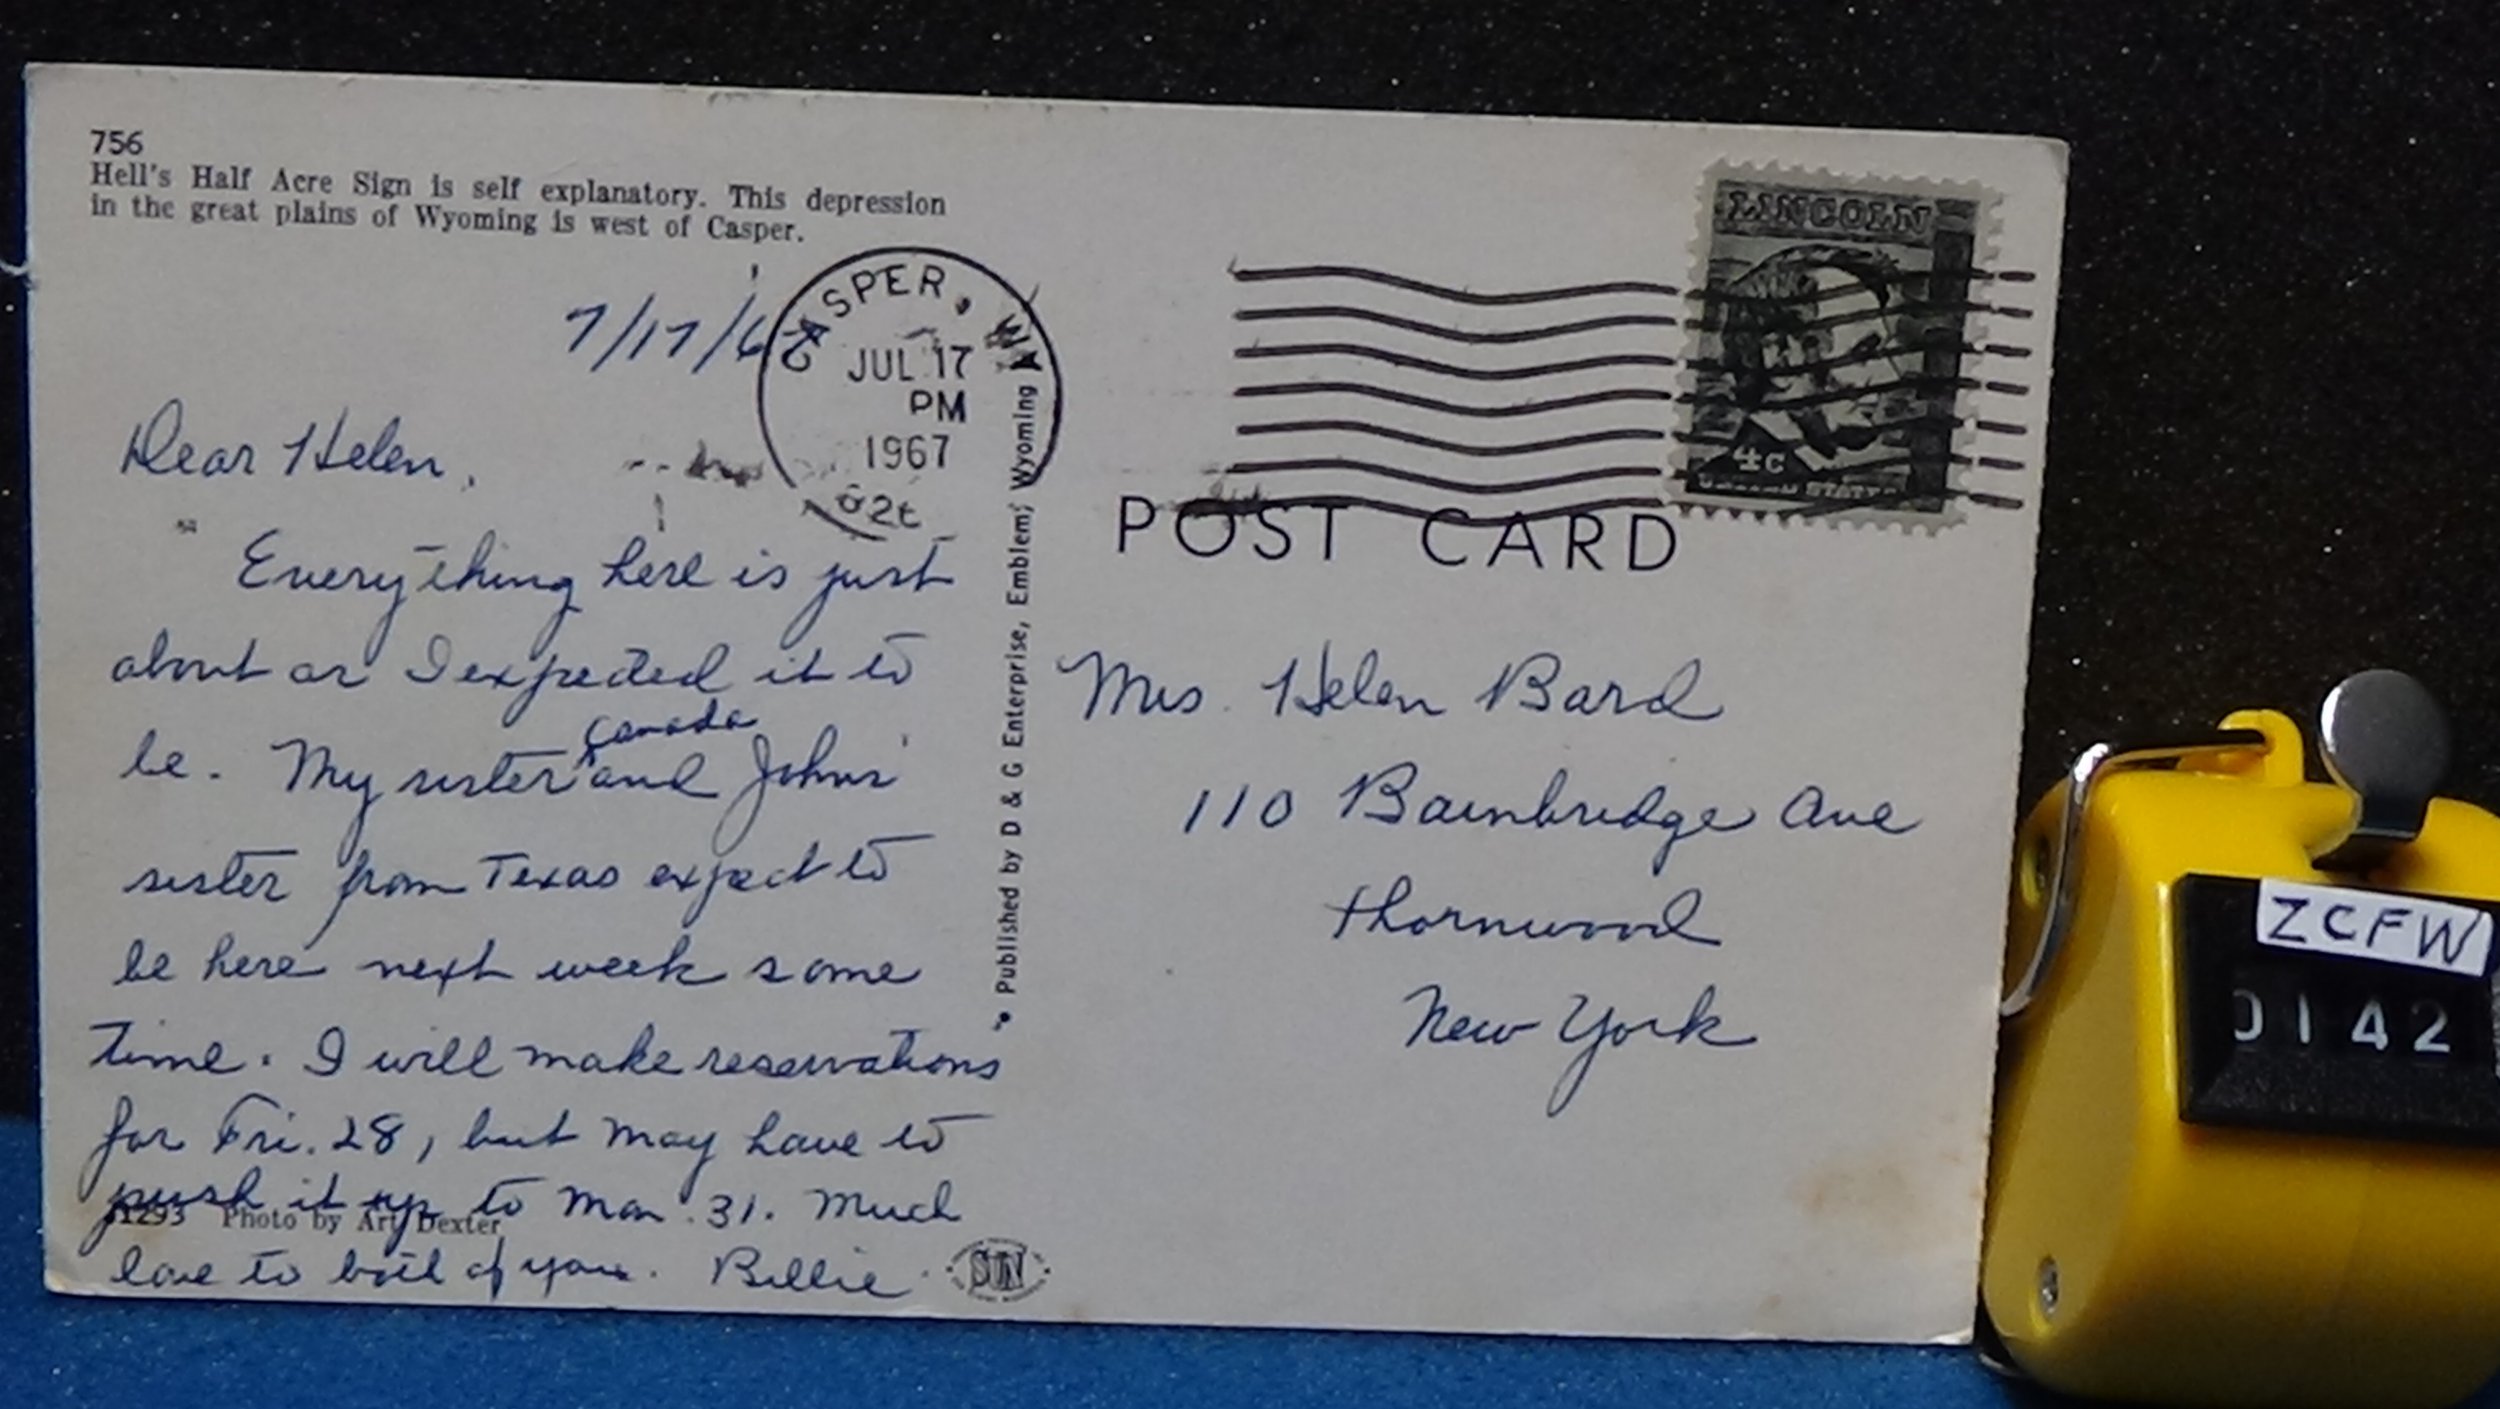 756
Hell's Half Acre Sign is self explanatory. This depression
in the great plains of Wyoming is west of Casper.
7/17/67
CASPER, WY
JUL 17
PM
1967
LINCOLN
4c
UNITED STATES
POST CARD
Dear Helen,
Everything here is just
about as I expected it to
be. My sister ^Canada and John's
sister from Texas expect to
be here next week some
time. I will make reservations
for Fri. 28, but may have to
push it up to Mon. 31. Much
love to both of you. Billie
Photo by Art Dexter
SUN
Published by D & G Enterprise, Emblem, Wyoming
Mrs. Helen Bard
110 Bainbridge Ave
Thornwood
New York
ZCFW
0142